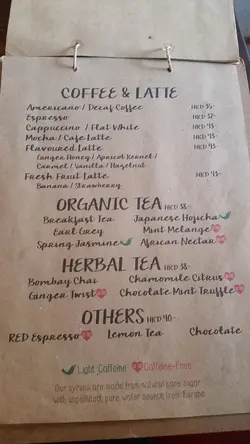 COFFEE & LATTE
Americano / Decaf Coffee HKD 35-
Espresso HKD 32-
Cappuccino / Flat White HKD 43-
Mocha / Cafe Latte HKD 43-
Flavoured Latte HKD 45
Ginger Honey / Apricot Kernel /
Caramel / Vanilla / Hazelnut
Fresh Fruit Latte HKD 45-
Banana / Strawberry
ORGANIC TEA HKD 38-
Breakfast Tea Japanese Hojicha
Earl Grey Mint Melange
Spring Jasmine African Nectar
HERBAL TEA HKD 38-
Bombay Chai Chamomile Citrus
Ginger Twist Chocolate Mint Truffle
OTHERS HKD 40-
RED Espresso Lemon Tea Chocolate
Light Caffeine Caffeine-Free
Our syrups are made from natural cane sugar
with unpolluted, pure water source from Europe